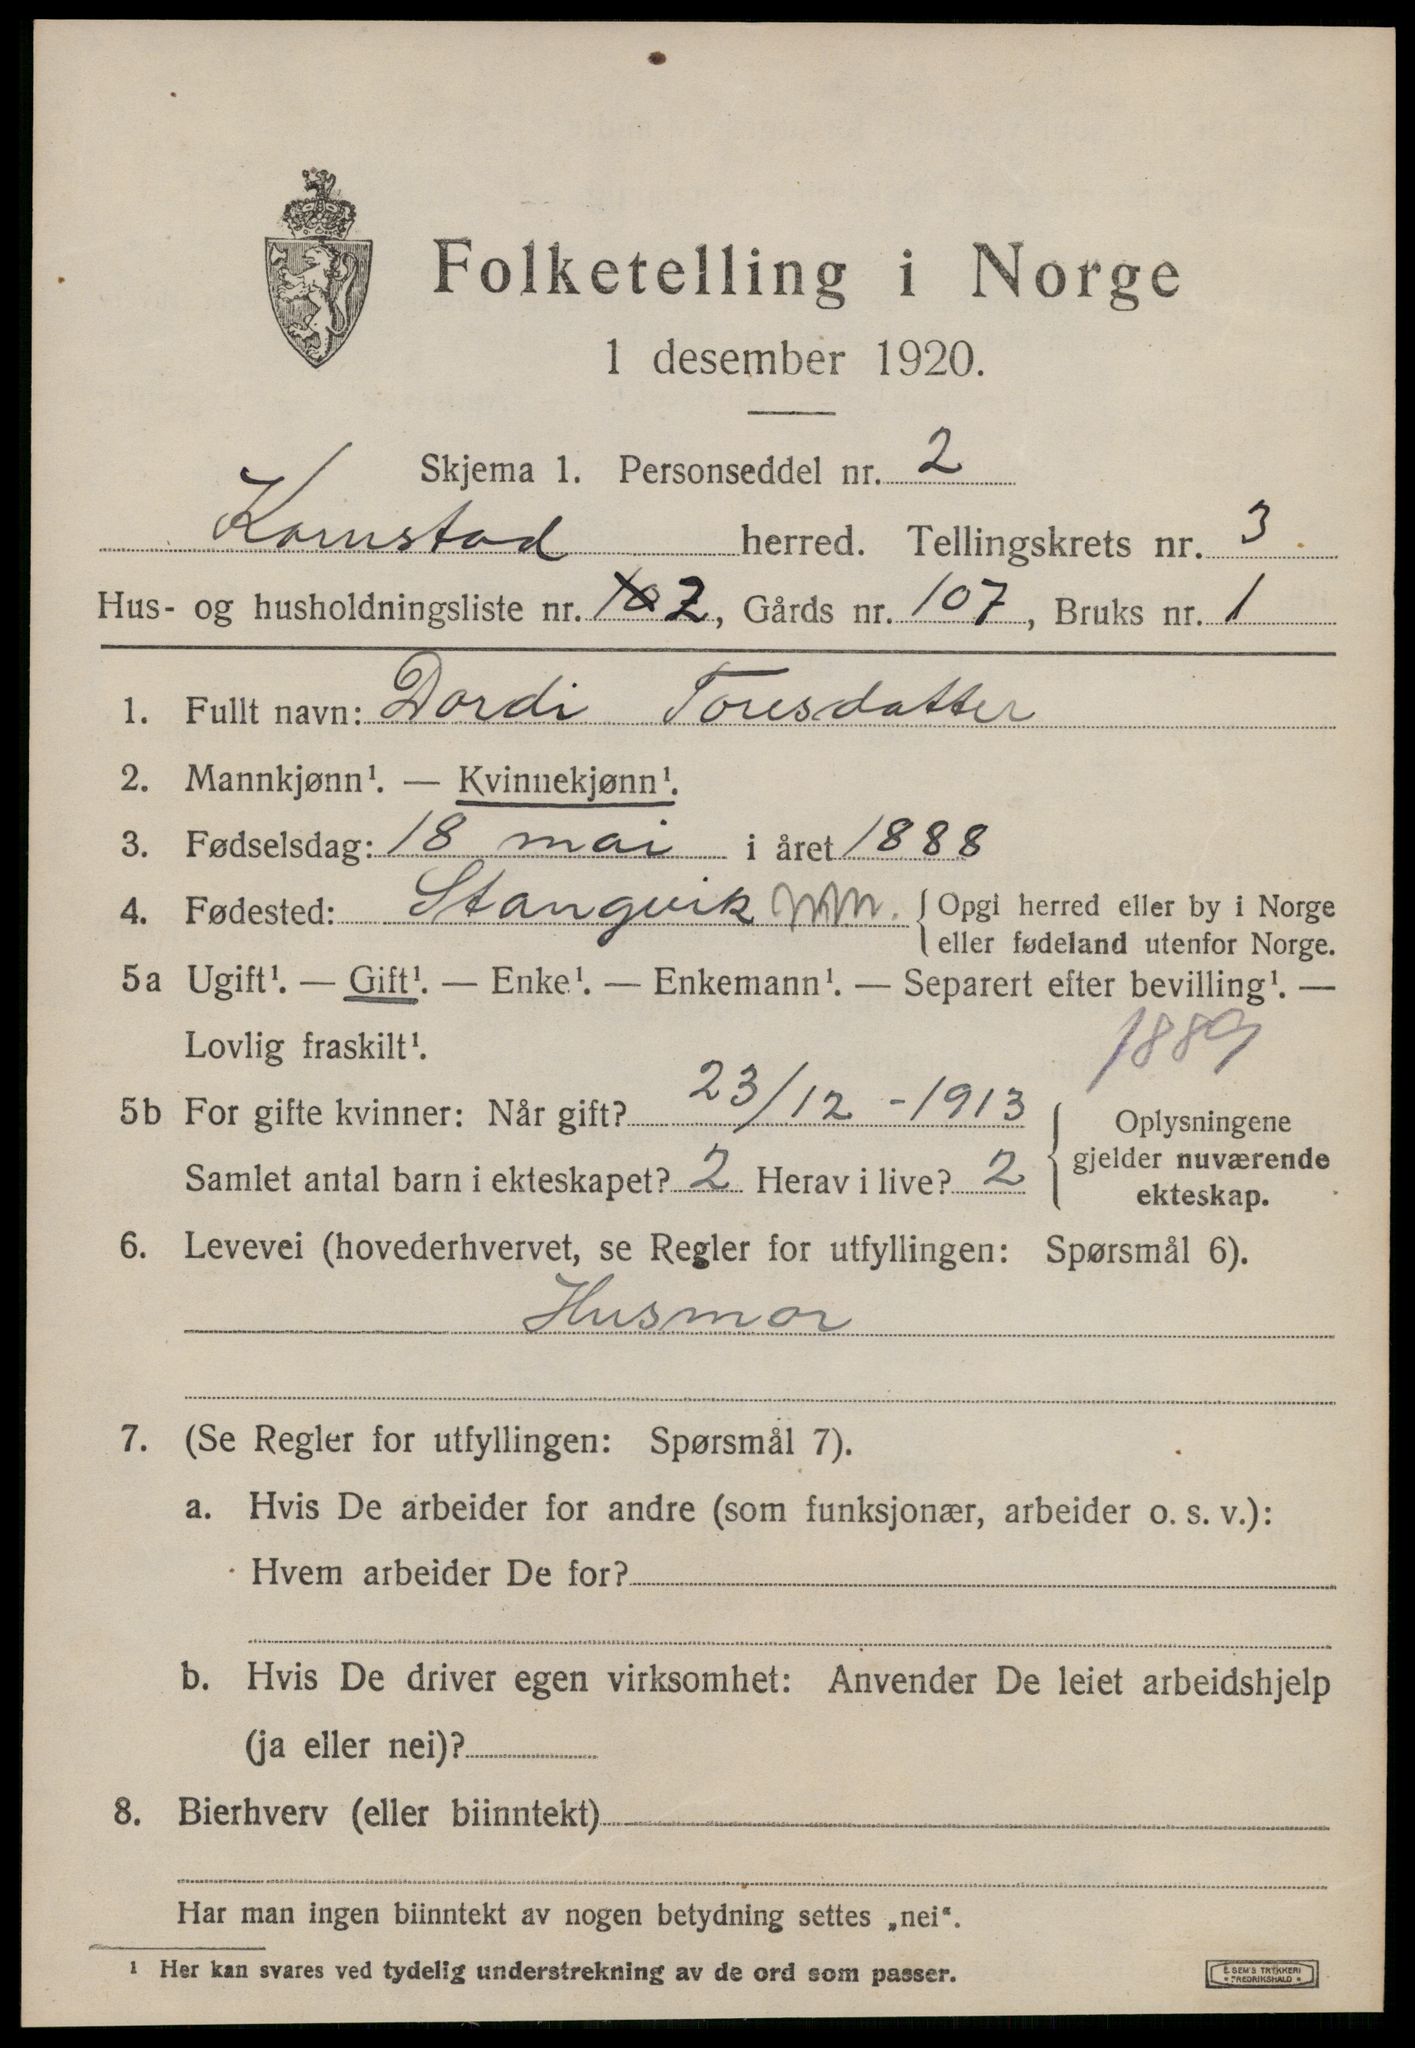 Folketelling i Norge
1 desember 1920.
Skjema 1. Personseddel nr. 2
Kornstad herred. Tellingskrets nr. 3
Hus- og husholdningsliste nr. 10 2, Gårds nr. 107, Bruks nr. 1
1. Fullt navn: Dordi Toresdatter
2. Mannkjønn¹. — Kvinnekjønn¹.
3. Fødselsdag: 18 mai i året 1888
4. Fødested: Stangvik { Opgi herred eller by i Norge
eller fødeland utenfor Norge.
5a Ugift¹. — Gift¹. — Enke¹. — Enkemann¹. — Separert efter bevilling¹. —
Lovlig fraskilt¹. 1889
5b For gifte kvinner: Når gift? 23/12 - 1913 { Oplysningene
gjelder nuværende
Samlet antal barn i ekteskapet? 2 Herav i live? 2 ekteskap.
6. Levevei (hovederhvervet, se Regler for utfyllingen: Spørsmål 6).
Husmor
7. (Se Regler for utfyllingen: Spørsmål 7).
a. Hvis De arbeider for andre (som funksjonær, arbeider o. s. v.):
Hvem arbeider De for?
b. Hvis De driver egen virksomhet: Anvender De leiet arbeidshjelp
(ja eller nei)?
8. Bierhverv (eller biinntekt)
Har man ingen biinntekt av nogen betydning settes „nei“.
¹ Her kan svares ved tydelig understrekning av de ord som passer.
E. SEM'S TRYKKERI
FREDRIKSHALD